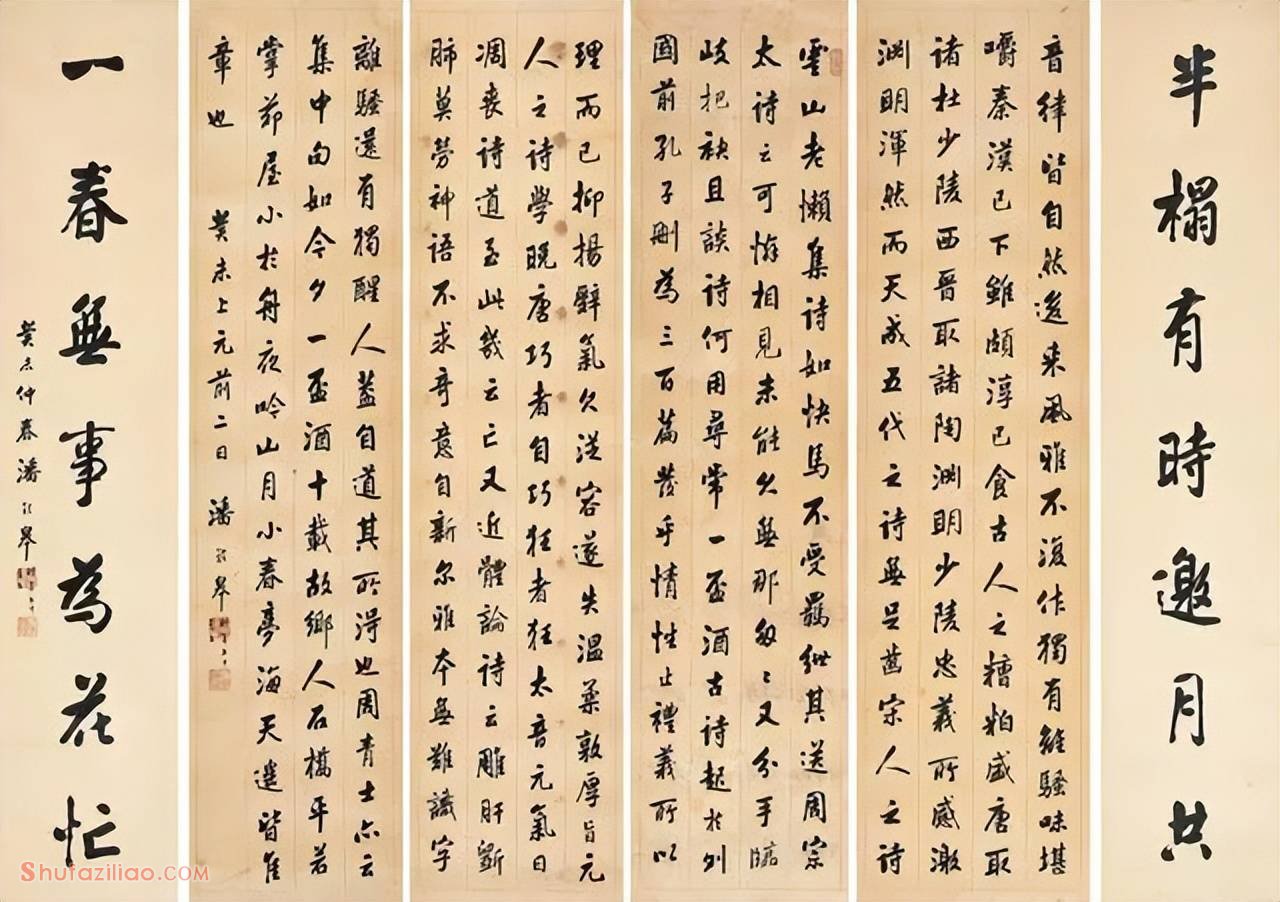 半榻有時邀月共
音律皆自然迨来風雅不復作獨有離騷味堪
嚼秦漢已下雖頗淳已食古人之糟粕盛唐取
諸杜少陵西晋取諸陶淵明少陵忠義所感激
淵明渾然而天成五代之詩無足齒宋人之詩
雲山老懶集詩如快馬不受羈紲其送周宗
太詩云可憐相見未能久無那匆〻又分手臨
岐把袂且談詩何用尋常一盃酒古詩起於列
國前孔子刪為三百篇發乎情性止禮義所以
理而已抑揚辭氣欠從容遂失溫柔敦厚旨元
人之詩學晚唐巧者自巧狂者狂太音元氣日
凋喪詩道至此幾云亡又近體論詩云雕肝劉
肺莫勞神語不求奇意自新尔雅本無難識字
離騷還有獨醒人蓋自道其所得也周青士亦云
集中句如今夕一盃酒十載故鄉人石橋平若
掌茆屋小於舟夜吟山月小春夢海天遥皆隹
章也 癸未上元前二日 潘齡皋
一春無事為花忙
癸未仲春潘齡皋
Shufaziliao.com